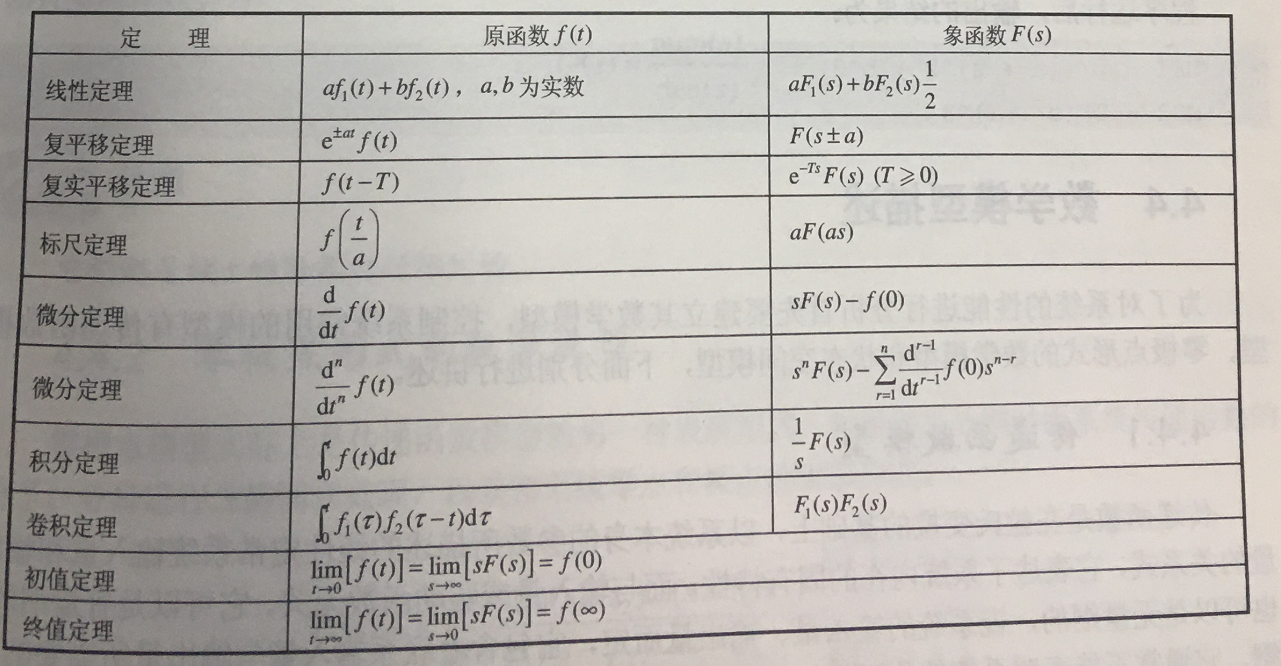 定 理 原函数 f(t) 象函数 F(s)
线性定理 af₁(t)+bf₂(t)，a,b 为实数 aF₁(s)+bF₂(s)1/2
复平移定理 e^{±at} f(t) F(s±a)
复实平移定理 f(t−T) e^{−Ts}F(s) (T⩾0)
标尺定理 f(t/a) aF(as)
微分定理 d/dt f(t) sF(s)−f(0)
微分定理 dⁿ/dtⁿ f(t) sⁿF(s)−∑_{r=1}^{n} d^{r−1}/dt^{r−1} f(0)s^{n−r}
积分定理 ∫₀ᵗ f(t)dt 1/s F(s)
卷积定理 ∫₀ᵗ f₁(τ)f₂(τ−t)dτ F₁(s)F₂(s)
初值定理 lim_{t→0}[f(t)]=lim_{s→∞}[sF(s)]=f(0)
终值定理 lim_{t→∞}[f(t)]=lim_{s→0}[sF(s)]=f(∞)